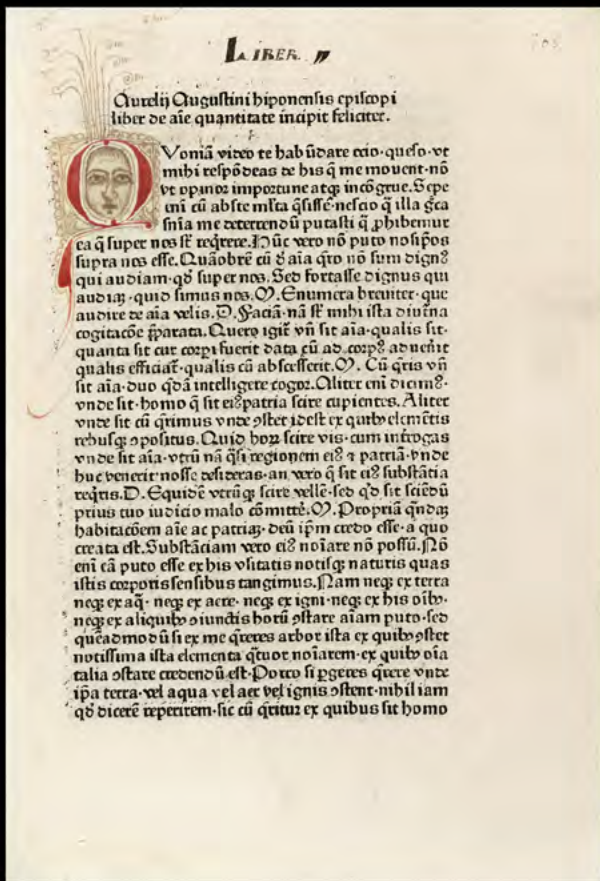 LIBER
Aurelij Augustini hiponensis episcopi
liber de aīe quantitate incipit feliciter.
QVoniā video te habūdare ocio·queso·vt
mihi respōdeas de his q̄ me mouent·nō
vt opinor importune atqꝫ incōgrue. Sepe
eni cū abs te ml̄ta q̄siſſē·nescio q̄ illa gͣca
sn̄ia me deterrendū putasti q̄ ꝓhibemur
ea q̄ super nos sūt reqͥrere. Nūc vero nō puto nosip̄os
supra nos esse. Quāobrē cū ꝺ̄ aīa qͥro nō sum dignꝰ
qui audiam·qd̄ super nos. Sed fortasse dignus qui
audiaꝫ·quid simus nos. M. Enumera breuiter·que
audire de aīa velis. D. Faciā·nā sūt mihi ista diutina
cogitacōe p̄parata. Quero igit̄ vn̄ sit aīa·qualis sit·
quanta sit cur corpi fuerit data cū ad corpꝰ aduenit
qualis efficiat̄·qualis cū abscesserit. M. Cū q̄ris vn̄
sit aīa·duo qͦdā intelligere cogor. Aliter eni dicimꝰ·
vnde sit·homo q̄ sit eiꝰ patria scire cupientes. Aliter
vnde sit cū q̄rimus vnde ꝯstet idest ex quibꝰ elemētis
rebusqꝫ ꝯpositus. Quid hoꝝ scire vis·cum īntrogas
vnde sit aīa·vtrū nā q̄si regionem eiꝰ ⁊ patriā·vnde
huc venerit nosse desideras·an vero q̄ sit eiꝰ substātia
reqͥris. D. Equidē vtrūqꝫ scire vellē·sed qͥd sit sciēdū
prius tuo iudicio malo cōmittē. M. Propriā qͣndaꝫ
habitacōem aīe ac patriaꝫ·deū ip̄m credo esse·a quo
creata est. Substāciam vero eiꝰ noīare nō possū. Nō
eni eā puto esse ex his vsitatis notisqꝫ naturis quas
istis corporis sensibus tangimus. Nam neqꝫ ex terra
neqꝫ ex aq̄·neqꝫ ex aere·neqꝫ ex igni·neqꝫ ex his oībꝰ·
neqꝫ ex aliquibꝰ ꝯiunctis horū ꝯstare aīam puto·sed
quēadmodū si ex me q̄reres arbor ista ex quibꝰ ꝯstet
notissima ista elementa q̄tuor noīarem·ex quibꝰ oīa
talia ꝯstare credendū est·Porro si ꝑgeres q̄rere vnde
ip̄a terra·vel aqua vel aer vel ignis ꝯstent·nihil iam
qd̄ dicerē reperirem·sic cū q̄ritur ex quibus sit homo